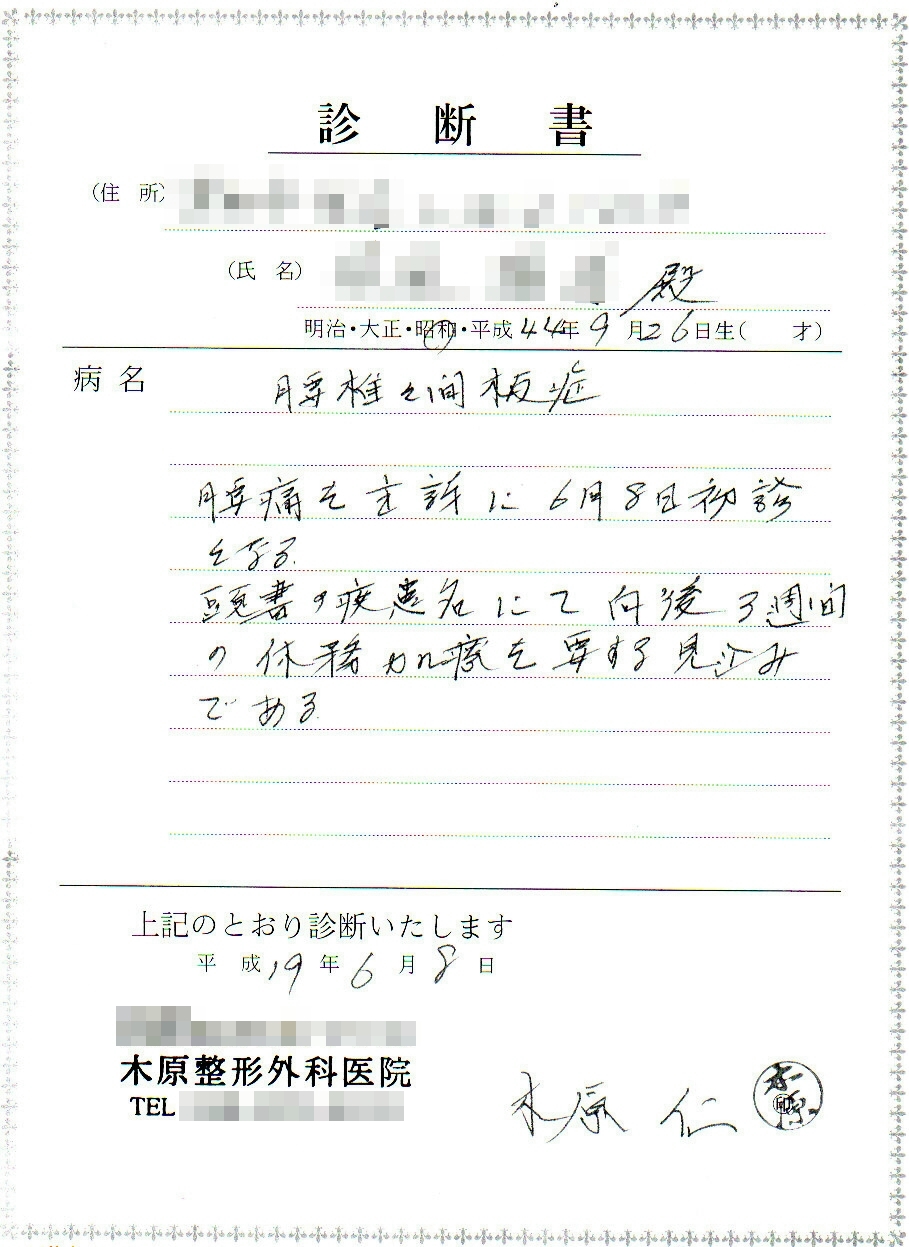 診断書
(住 所)
(氏 名) 殿
明治・大正・昭和・平成 44年 9月26日生( 才)
病名 腰椎々間板症
腰痛を主訴に6月8日初診
となる
頭書の疾患名にて向後3週間
の休務加療を要する見込み
である
上記のとおり診断いたします
平成19年6月8日
木原整形外科医院
TEL
木原 仁 木原